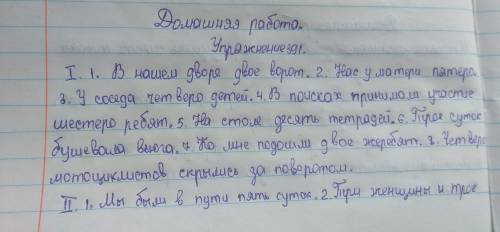 Домашняя работа.
Упражнение 391.
I. 1. В нашем дворе двое ворот. 2. Нас у матери пятеро.
3. У соседа четверо детей. 4. В поисках принимали участие
шестеро ребят. 5. На столе десять тетрадей. 6. Трое суток
бушевала вьюга. 7. Ко мне подошли двое жеребят. 8. Четверо
мотоциклистов скрылись за поворотом.
II. 1. Мы были в пути пять суток. 2. Три женщины и трое